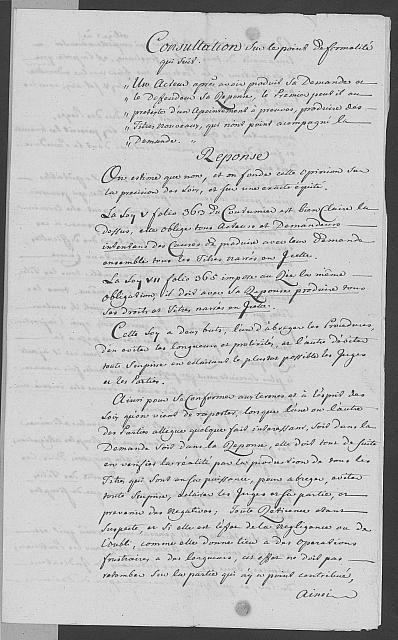 Consultation Sur le point de formalité
qui suit.
„ Un Acteur après avoir produit Sa Demande et
„ le Deffendeur Sa Réponse, le Premier peut il au
„ pretexte d'un Apointement à prouver, produire des
„ Titres nouveaux, qui n'ont point acompagné la
„ Demande. „
Reponse
On estime que non, et on fonde cette opinion Sur
la precision des Loix, et sur une exacte équité.
La Loy V folio 363 du Coutumier est bien Claire la
dessus, elle oblige tous Acteurs et Demandeurs
intentans des Causes de produire avec leur Demande
ensemble tous les Titres narrés en Icelle.
La Loy VII folio 365 impose au Rée la même
obligation, il doit avec sa Réponse produire tous
Ses droits et Titres narrés en Icelle.
Cette Loy a deux buts, l'un d'abreger les Procedures,
d'en eviter les longueurs et prolixités, et l'autre d'éviter
toute Surprise en éclairant le plustot possible les Juges
et les Parties.
Ainsi pour Se Conformer aux termes et à l'esprit des
Loix qu'on vient de raporter, lorsque l'une ou l'autre
des Parties allegue quelque fait interessant, Soit dans la
Demande Soit dans la Réponse, elle doit tout de suite
en verifier la réalité par la production de tous les
Titres qui Sont en Sa puissance, pour abreger, eviter
toute Surprise, éclairer les Juges et Sa partie, et
prevenir des Negatives; Toute Reticence etant
Suspecte, et Si elle est l'effet de la Negligence ou de
l'oubli, comme elle donne lieu à des operations
frustraires à des longueurs, cet effet ne doit pas
retomber Sur la partie qui n'y a point contribué,
Ainsi